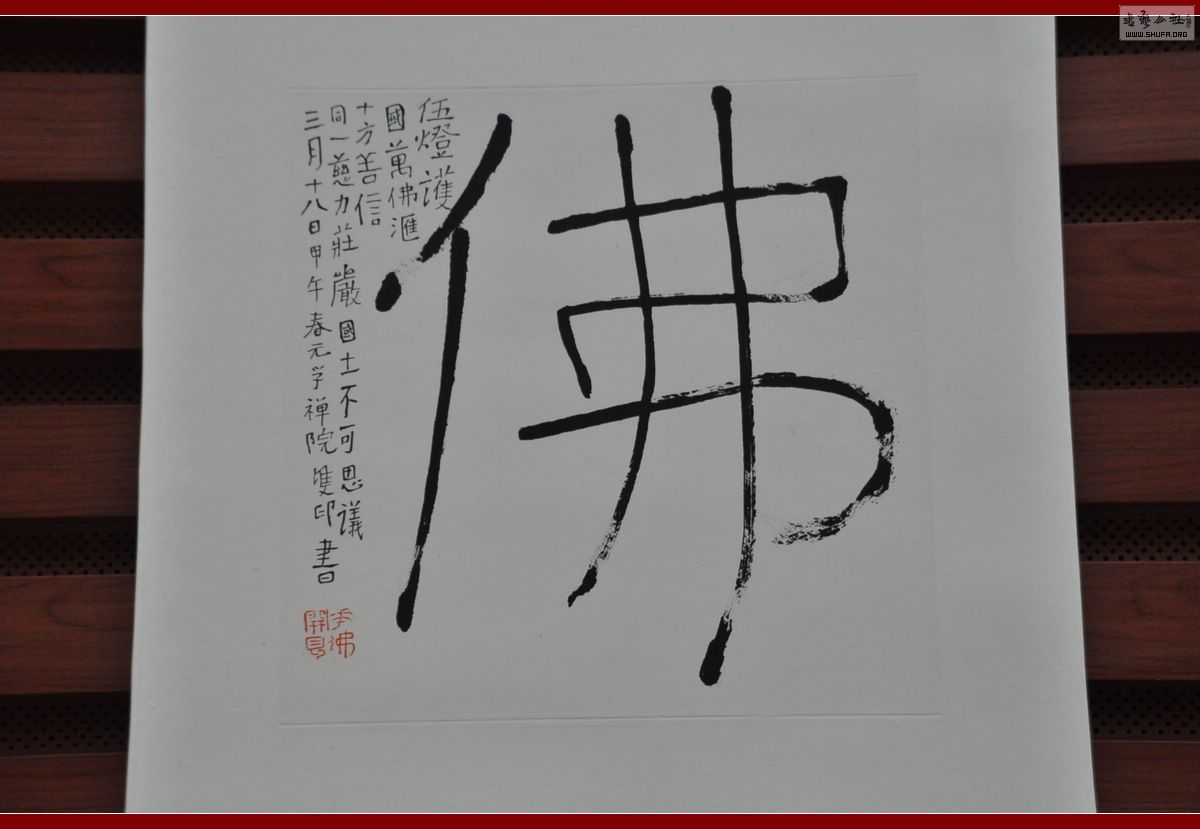 佛
伍燈護
國萬佛滙
十方善信
同一慈力莊嚴國土不可思议
三月十八日甲午春元学禅院雙印書
WWW.SHUFA.ORG